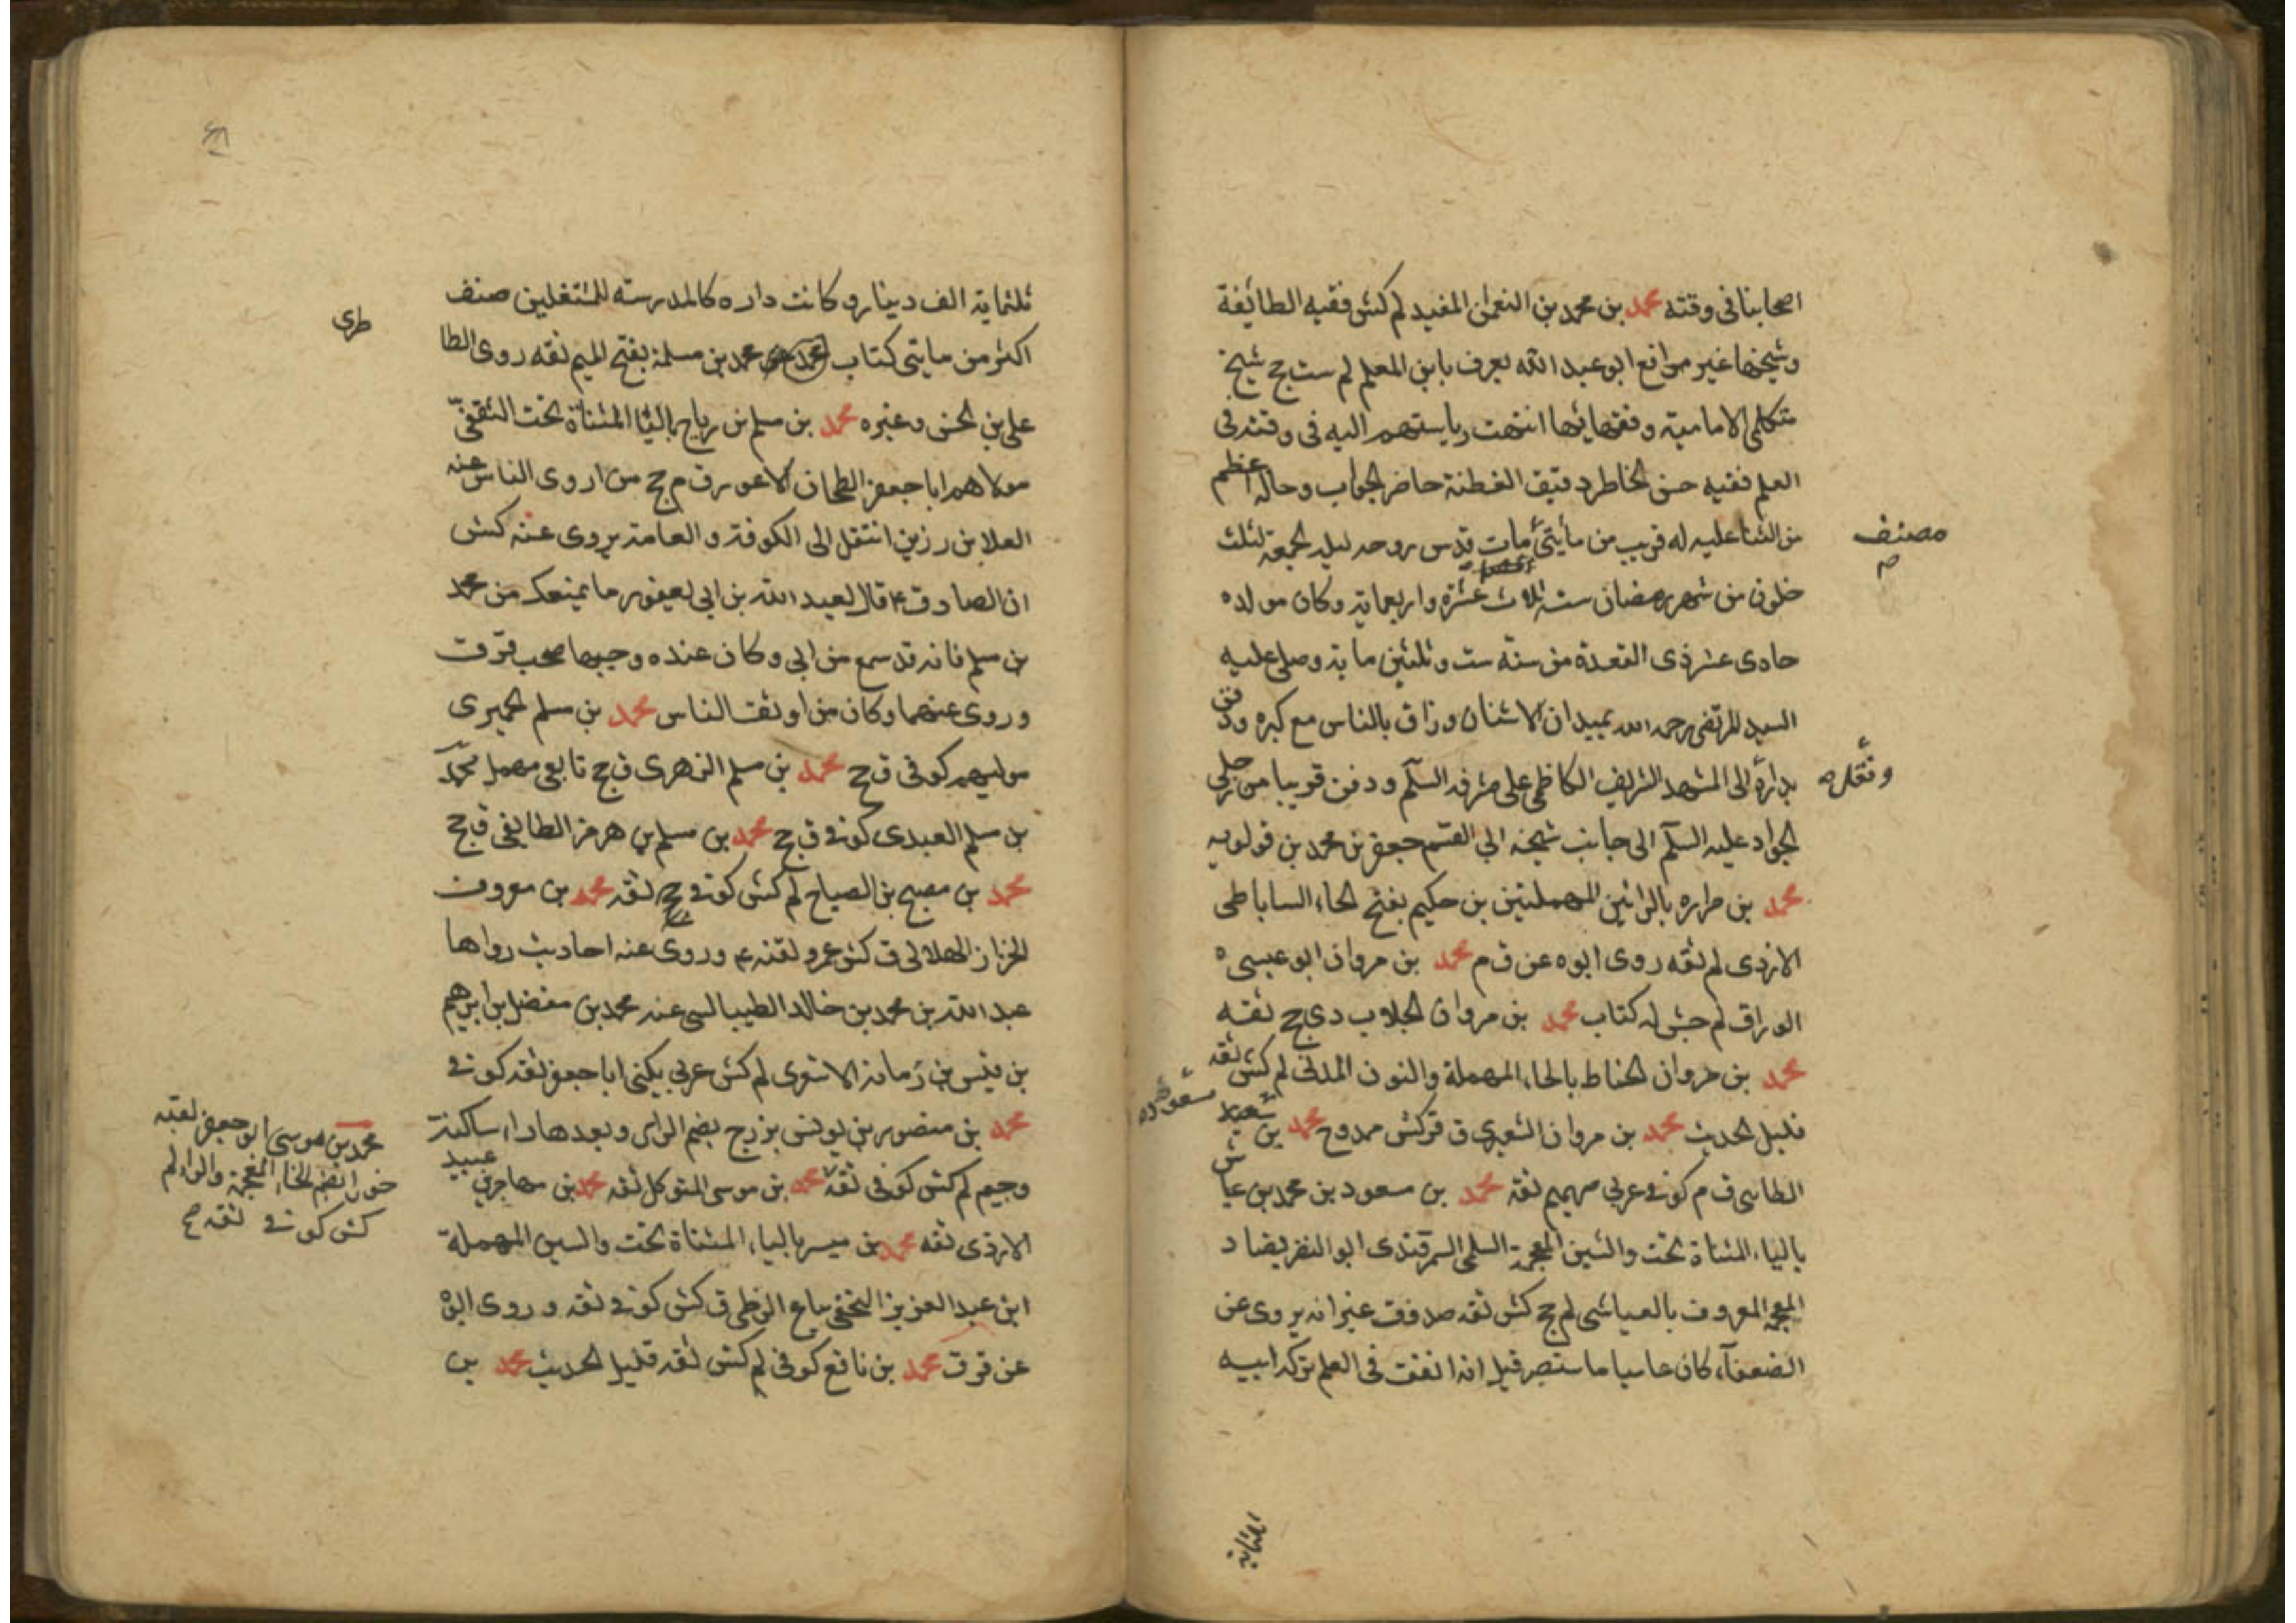 اصحابنا فى وقته محمد بن محمد بن النعمن المفيد لم كش فقيه الطائفة
وشيخها غير مدافع ابو عبد الله يعرف بابن المعلم لم ست جخ شيخ
متكلمى الامامية وفقهائها انتهت رياستهم اليه فى وقته فى
العلم فقيه حسن الخاطر دقيق الفطنة حاضر الجواب وحاله اعظم
من الثنا عليه له قريب من مأيتى مصنف مات قدس روحه ليلة الجمعة لثلث
خلون من شهر رمضان سنة ثلاث عشرة واربعماية وكان مولده
حادى عشر ذى القعدة من سنة ست وثلثين ماية وصلى عليه
السيد المرتضى رحمه الله بميدان الاشنان وزاق بالناس مع كبره ودفن
بداره ونقل الى المشهد الشريف الكاظمى على مشرفه السلم ودفن قريبا من رجلى
الجواد عليه السلم الى جانب شيخه ابى القسم جعفر بن محمد بن قولويه
محمد بن مراره بالرائين المهملتين بن حكيم بفتح الحاء الساباطى
الازدى لم ثقه روى ابوه عن ق م محمد بن مروان ابو عيسى
الوراق لم جش له كتاب محمد بن مروان الجلاب دى جخ ثقه
محمد بن مروان الحناط بالحاء المهملة والنون المدنى لم كش ثقه
قليل الحديث محمد بن مروان الشعيرى ق قر كش ممدوح محمد بن مسعود
الطائى ق م كوفى عربى صميم ثقه محمد بن مسعود بن محمد بن عياش
بالياء المثناة تحت والشين المعجمة السلمى السمرقندى ابو النضر بضاد
المعجمة المعروف بالعياشى لم جخ كش ثقه صدوق غير انه يروى عن
الضعفآء كان عاميا ما ستبصر قيل انه انفق فى العلم تركة ابيه
ثلثماية
ثلثماية الف دينار وكانت داره كالمدرسته للمشتغلين صنف
اكثر من مايتى كتاب محمد بن مسلمة بفتح الميم ثقه روى الطاطرى
على بن الحسن وغيره محمد بن مسلم بن رياح باليا المثناة تحت الثقفى
مولاهم ابا جعفر الطحان الاعور ق م جخ من اروى الناس عنه
العلا بن رزين انتقل الى الكوفة والعامة يروى عنه كش
ان الصادق ع قال لعبد الله بن ابى يعفور ما يمنعك من محمد
بن مسلم فانه قد سمع من ابى وكان عنده وجيها صحب قر ق
وروى عنهما وكان من اوثق الناس محمد بن مسلم الحميرى
موليهم كوفى ق جخ محمد بن مسلم الزهرى ق جخ تابعى مهمل محمد
بن مسلم العبدى كوفى ق جخ محمد بن مسلم بن هرمز الطايفى ق جخ
محمد بن مصبح بن الصباح لم كش كوفى ثقه محمد بن معروف
الخزاز الهلالى ق كش عمر ولقنه ع وروى عنه احاديث رواها
عبد الله بن محمد بن خالد الطيالسى عنه محمد بن مفضل بن ابرهيم
بن قيس بن رمانة الاشعرى لم كش عربى يكنى ابا جعفر ثقه كوفى
محمد بن منصور بن يونس بزرج بضم الزاى وبعدها راء ساكنة
وجيم لم كش كوفى ثقه محمد بن موسى المتوكل ثقه محمد بن مهاجر بن عبيد
الازدى ثقه محمد بن ميسر بالياء المثناة تحت والسين المهملة
ابن عبد العزيز النخعى بياع الزطى ق كش كوفى ثقه وروى ابوه
عن قر ق محمد بن نافع كوفى لم كش ثقه قليل الحديث محمد بن
محمد بن موسى ابو جعفر لقبه
خورا بضم الخاء المعجمة والراء لم
كش كوفى ثقه صح